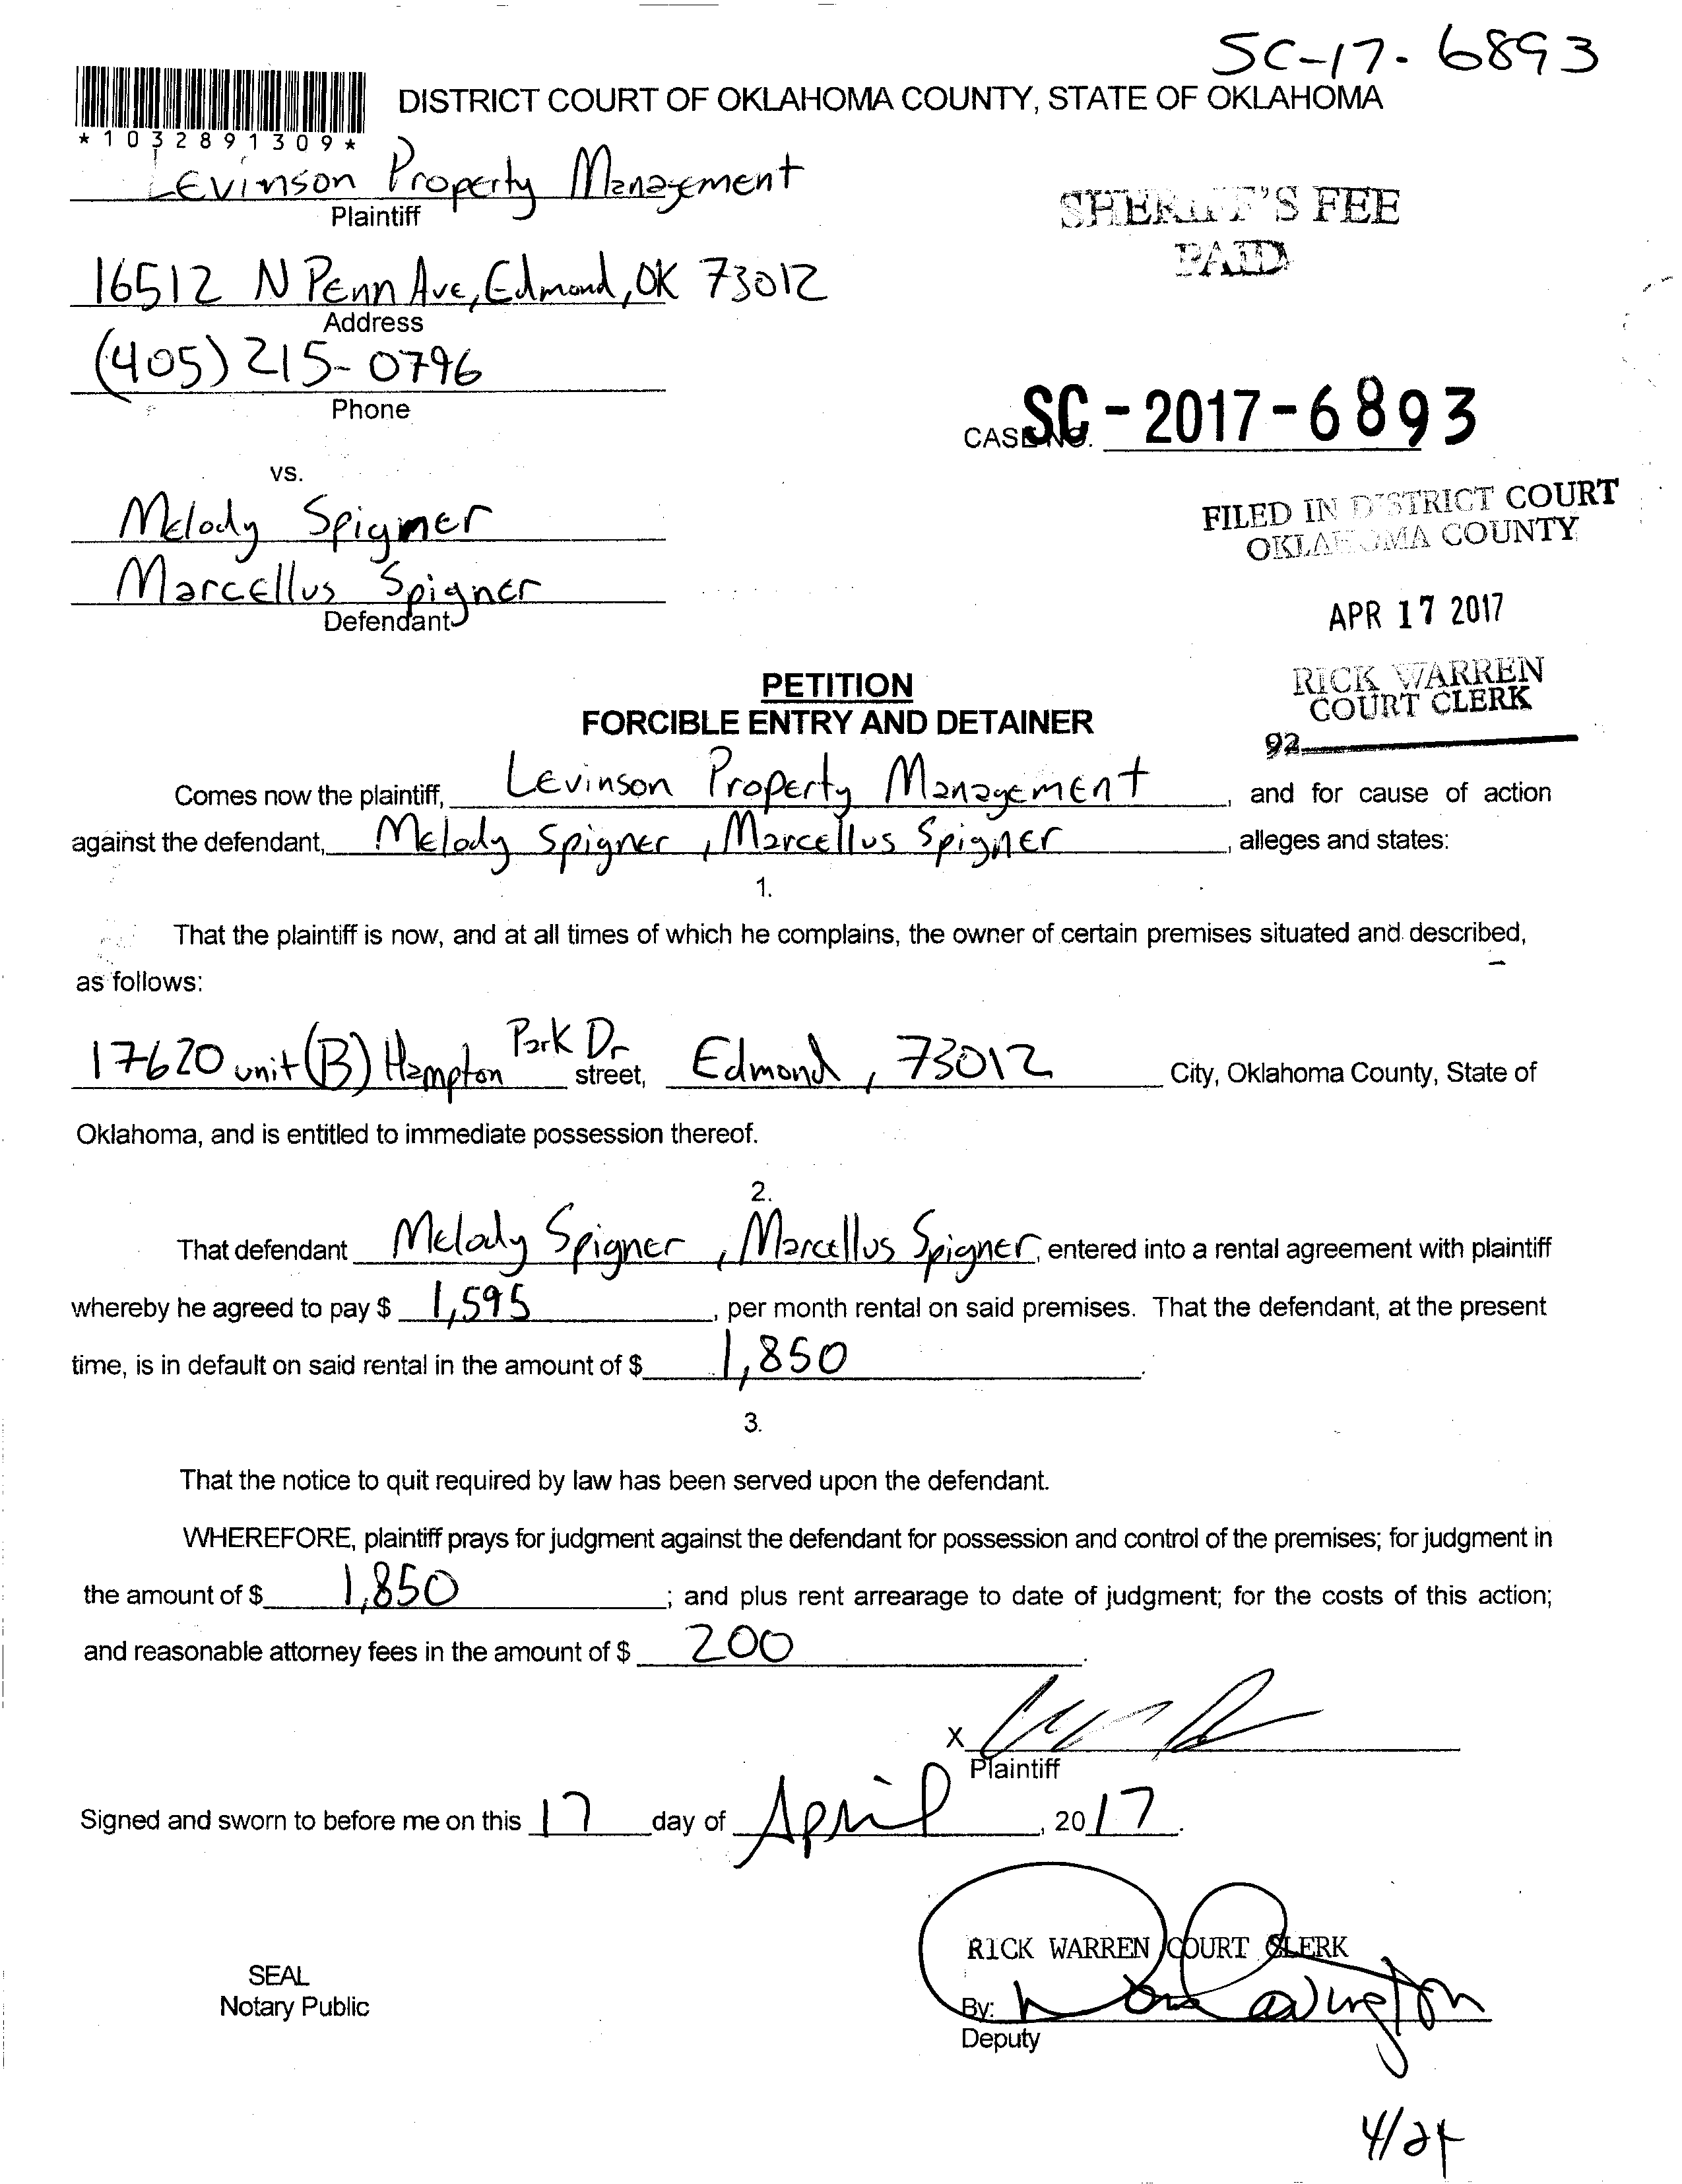 SC-17-6893
DISTRICT COURT OF OKLAHOMA COUNTY, STATE OF OKLAHOMA
*1032891309*
Levinson Property Management
Plaintiff
SHERIFF'S FEE
PAID
16512 N Penn Ave, Edmond, OK 73012
Address
(405) 215-0796
Phone
CASE NO. SC-2017-6893
vs.
Melody Spigner
Marcellus Spigner
Defendant
FILED IN DISTRICT COURT
OKLAHOMA COUNTY
APR 17 2017
RICK WARREN
COURT CLERK
92
PETITION
FORCIBLE ENTRY AND DETAINER
Comes now the plaintiff, Levinson Property Management, and for cause of action
against the defendant, Melody Spigner, Marcellus Spigner, alleges and states:
1.
That the plaintiff is now, and at all times of which he complains, the owner of certain premises situated and described,
as follows:
17620 unit (B) Hampton Park Dr street, Edmond, 73012 City, Oklahoma County, State of
Oklahoma, and is entitled to immediate possession thereof.
2.
That defendant Melody Spigner, Marcellus Spigner, entered into a rental agreement with plaintiff
whereby he agreed to pay $ 1,595, per month rental on said premises. That the defendant, at the present
time, is in default on said rental in the amount of $ 1,850.
3.
That the notice to quit required by law has been served upon the defendant.
WHEREFORE, plaintiff prays for judgment against the defendant for possession and control of the premises; for judgment in
the amount of $ 1,850; and plus rent arrearage to date of judgment; for the costs of this action;
and reasonable attorney fees in the amount of $ 200.
X
Plaintiff
Signed and sworn to before me on this 17 day of April, 2017.
RICK WARREN COURT CLERK
SEAL
Notary Public
By:
Deputy